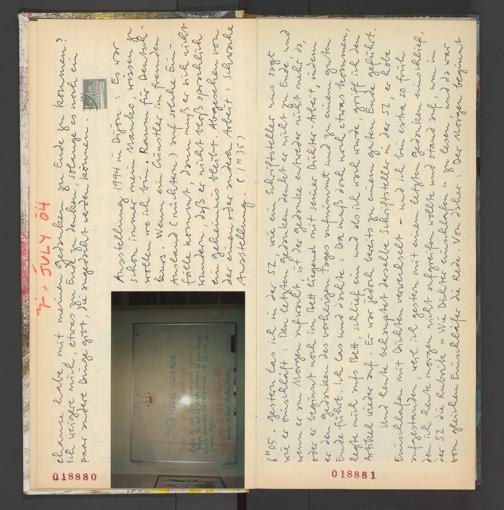 7. JULY 04
chance habe, mit meinen Gedanken zu Ende zu kommen?
ich weigere mich, etwas zu Ende zu denken, solange es noch ein
paar andere Dinge gibt, die zugedacht werden können.
Ausstellung 1994 in Dijon. Es war
schon immer mein Manko, wissen zu
wollen wo ich bin. Darum für Deutsch-
kurs. Wenn ein Künstler im fremden
Ausland (nichtern) auf solche Ein-
fälle kommt, dann muß er sich nicht
wundern, daß er nicht bloß sprachlich
ein Geheimnis bleibt. Abgesehen von
der einen oder anderen Arbeit: schwache
Ausstellung (1435)
018880
6H05 gestern las ich in der SZ wie ein Schriftsteller uns sagt
wie er einschläft: Den letzten Gedanken denkt er nicht zu Ende und
wenn er am Morgen aufwacht, ist der Gedanke entweder nicht mehr da,
oder er beginnt noch im Bett liegend mit seiner Dichter Arbeit, indem
er den Gedanken des vorherigen Tages aufnimmt und zu einem guten
Ende führt. Ich las und dachte: Da muß doch noch etwas kommen,
legte mich aufs Bett, schlief ein und als ich wach wurde, griff ich den
Artikel wieder auf. Er war jedoch bereits zu einem guten Ende geführt.
Und heute behauptet derselbe Schriftsteller in der SZ er habe
Einschlafen mit Dichten verwechselt – und ich bin extra so früh
aufgestanden, weil ich gestern mit einem letzten Gedanken einschlief,
den ich heute morgen nicht aufgreifen wollte und stand auf, um in
der SZ die Rubrik »Wie Dichter einschlafen« zu lesen, und da war
vom gleichen Einschläfer die Rede. Von daher: Der Morgen beginnt
018881